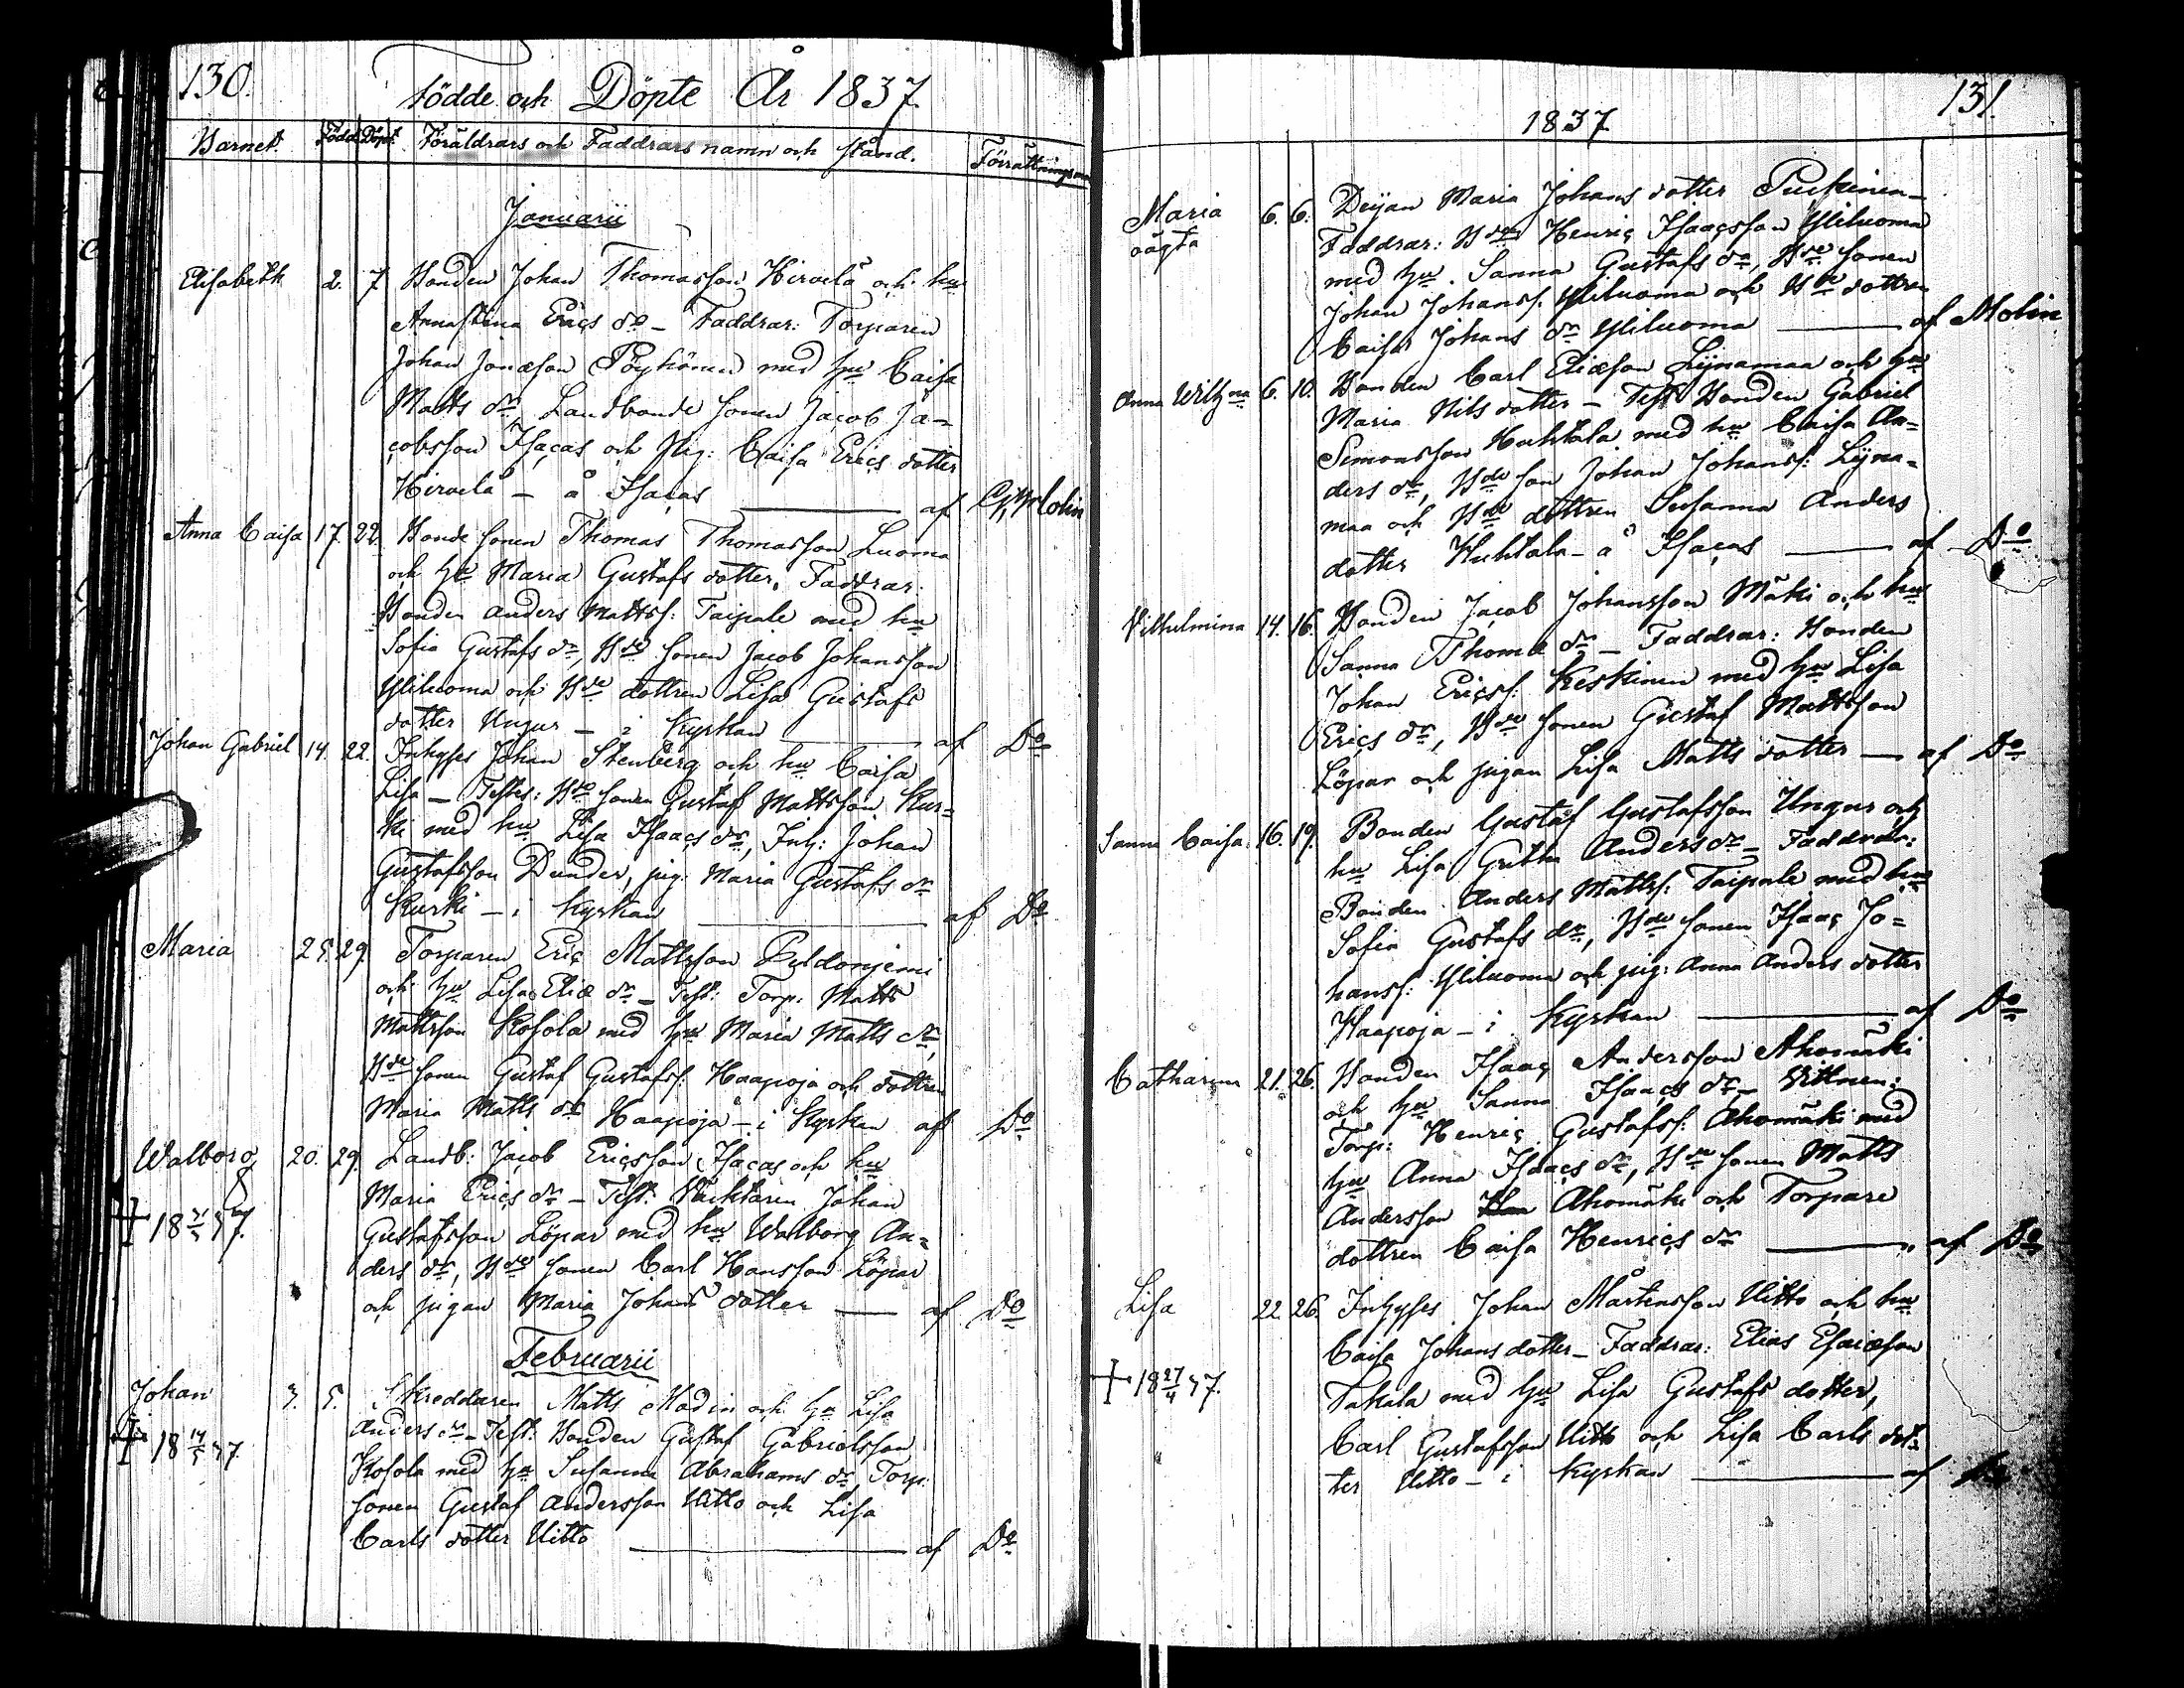 130.
Födde och Döpte År 1837.
Barnet. Född Döpt Föräldrars och Faddrars namn och stånd. Förrättningsman
Januarii
Elisabeth 2. 7 Bonden Johan Thomasson Hirvelä och hu
Annastina Erics dr – Faddrar: Torparen
Johan Jonæson Pöyhönen med hu Caisa
Matts dr, Landbonde sonen Jacob Ja=
cobsson Isacas och pig: Caisa Erics dotter
Hirvelä – å Isacas —— af Molin
Anna Caisa 17. 22. Bonde sonen Thomas Thomasson Luoma
och hu Maria Gustafs dotter. Faddrar:
Bonden Anders Mattss: Taipale med hu
Sofia Gustafs dr, Bde sonen Jacob Johansson
Yliluoma och Bde dottren Lisa Gustafs
dotter Ungur – i Kyrkan —— af Do
Johan Gabriel 14. 22. Inhyses Johan Stenberg och hu Caisa
Lisa – Testes: Bde sonen Gustaf Mattsson Kur=
ki med hu Lisa Isaacs dr, Inh: Johan
Gustafsson Dunder, pig: Maria Gustafs dr
Kurki – i Kyrkan —— af Do
Maria 25. 29. Torparen Eric Mattsson Peldoniemi
och hu Lisa Eliæ dr – Test: Torp: Matts
Mattsson Kosola med hu Maria Matts dr,
Bde sonen Gustaf Gustafss: Haapoja och dottren
Maria Matts dr Haapoja – i Kyrkan af Do
Walborg 20. 29. Landb: Jacob Ericsson Isacas och hu
Maria Erics dr – Test: Väktaren Johan
† 18 37. Gustafsson Löpar med hu Walborg An=
ders dr, Bde sonen Carl Hansson Löpar
och pigan Maria Johans dotter —— af Do
Februarii
Johan 3. 5. Skreddaren Matts Modin och hu Lisa
Anders dr – Test: Bonden Gustaf Gabrielsson
† 18 37. Kosola med hu Susanna Abrahams dr, Torp:
sonen Gustaf Andersson Uitto och Lisa
Carls dotter Uitto —— af Do
131.
1837
Maria 6. 6. Deijan Maria Johans dotter
oägta Faddrar: Bden Henric Isaacsson Yliluoma
med hu Sanna Gustafs dr, Bde sonen
Johan Johanss: Yliluoma och Bde dottren
Caisa Johans dr Yliluoma —— af Molin
Anna Wilhna 6. 10. Bonden Carl Eliæson Lijnamaa och hu
Maria Nils dotter – Test Bonden Gabriel
Simonsson Huhtala med hu Caisa An=
ders dr, Bde son Johan Johanss: Lijna=
maa och Bde dottren Susanna Anders
dotter Huhtala – å Isacas —— af Do
Vilhelmina 14. 16. Bonden Jacob Johansson Mäki och hu
Sanna Thomæ dr – Faddrar: Bonden
Johan Ericss: Keskinen med hu Lisa
Erics dr, Bde sonen Gustaf Mattsson
Löpar och pigan Lisa Matts dotter — af Do
Sanna Caisa 16. 19. Bonden Gustaf Gustafsson Ungur och
hu Lisa Gretha Anders dr – Faddrar:
Bonden Anders Mattss: Taipale med hu
Sofia Gustafs dr, Bde sonen Isaac Jo=
hanss: Yliluoma och pig: Anna Anders dotter
Haapoja – i Kyrkan —— af Do
Catharina 21. 26. Bonden Isaac Andersson Ahomäki
och hu Sanna Isaacs dr – Vittnen:
Torp: Henric Gustafss: Ahomäki med
hu Anna Isaacs dr, Bde sonen Matts
Andersson Ahomäki och Torpare
dottren Caisa Henrics dr —— af Do
Lisa 22. 26. Inhyses Johan Mårtensson Uitto och hu
Caisa Johans dotter – Faddrar: Elias Esaiæson
† 18 27/4 37. Takala med hu Lisa Gustafs dotter,
Carl Gustafsson Uitto och Lisa Carls dot=
ter Uitto – i Kyrkan —— af Do